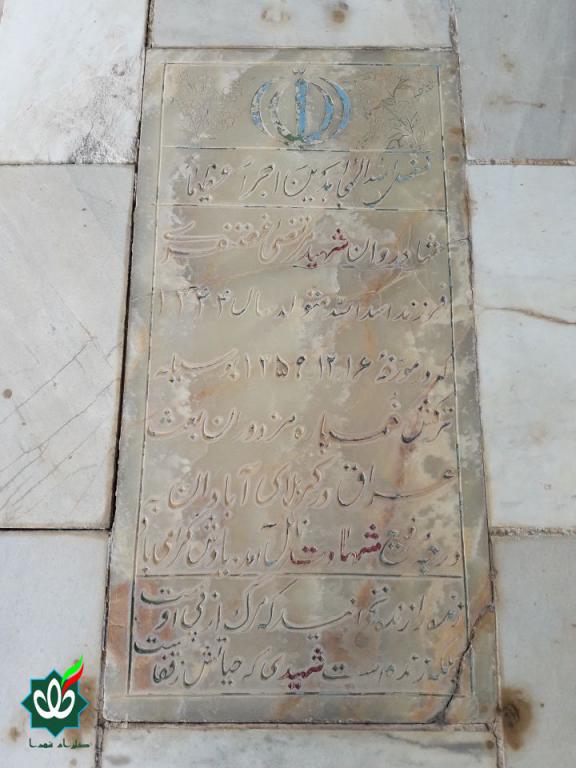 فضل الله المجاهدین اجراً عظیما
شادروان شهید مرتضی اعتقادی
فرزند اسدالله متولد سال ۱۳۴۴
که در مورخه ۱۳۵۹٫۱۲٫۱۶ بوسیله
ترکش خمپاره مزدوران بعث
عراق در کربلای آبادان به
درجه رفیع شهادت نائل آمد یادش گرامی باد
زنده را زنده نخوانید که مرگ از پی اوست
بلکه زنده است شهیدی که حیاتش ز قفاست
گلزار شهدا